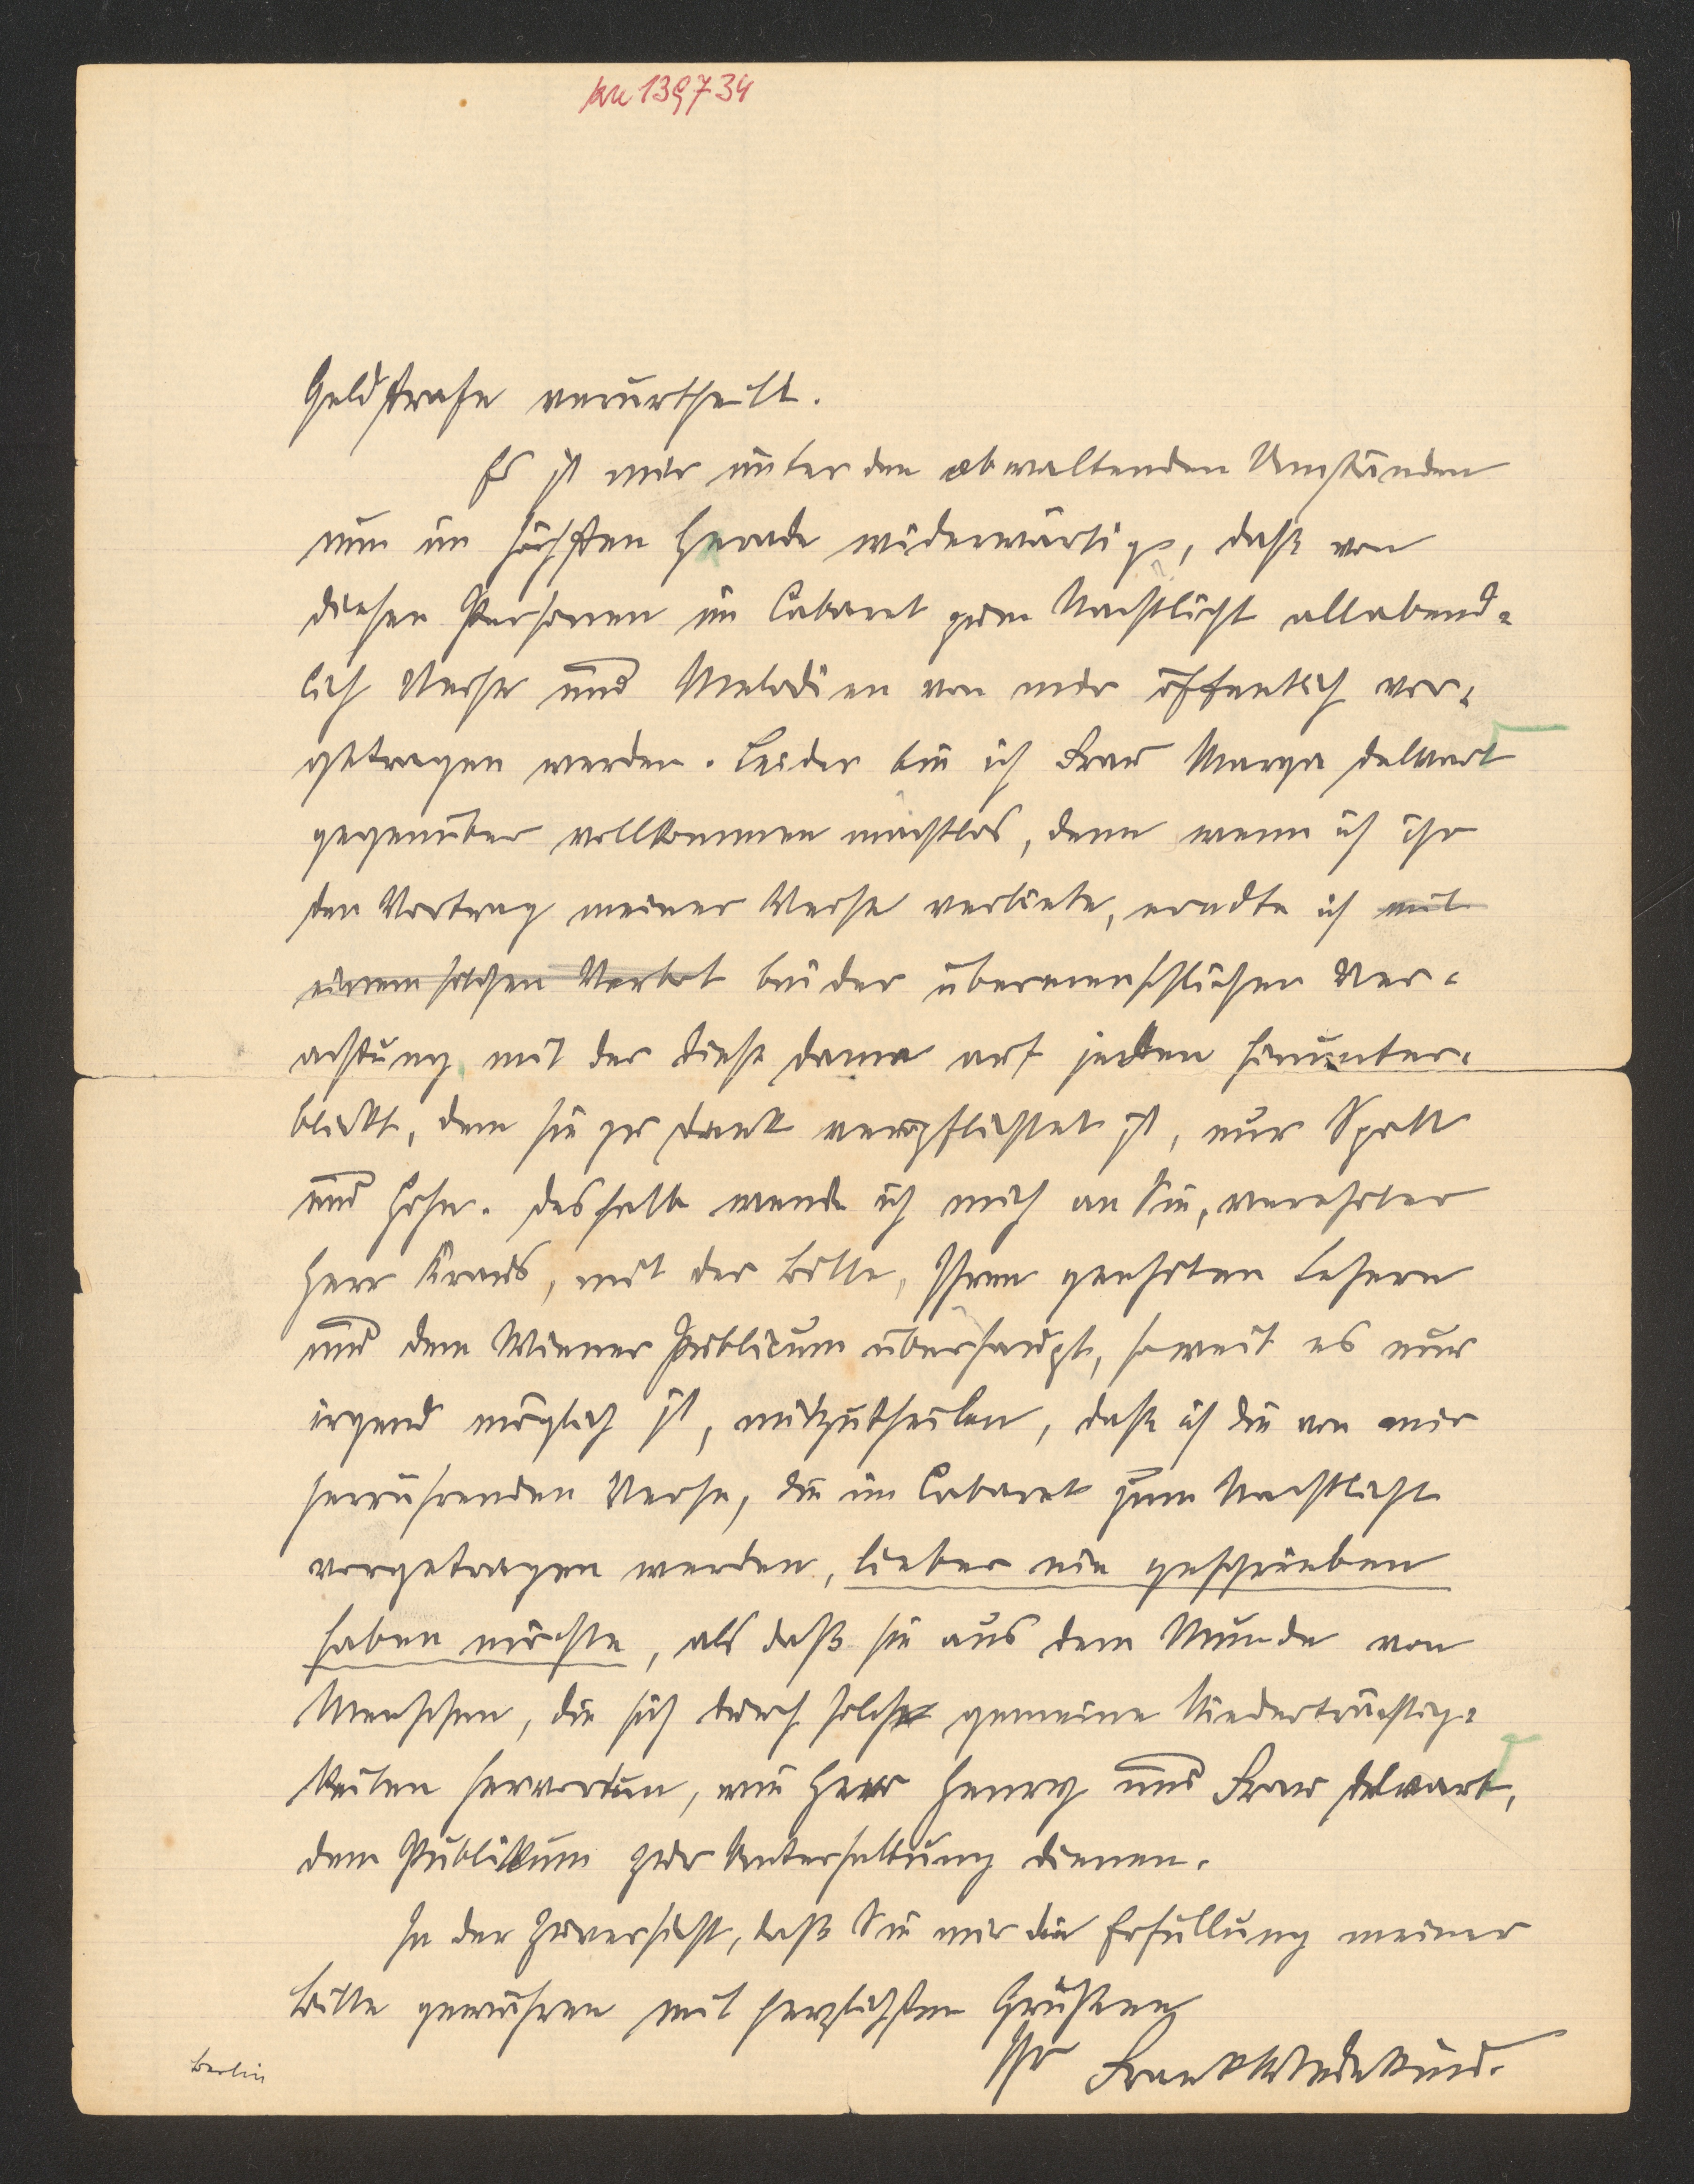 kn 139734
Geldstrafe verurtheilt.
Es ist mir unter den obwaltenden Umständen
nun im höchsten Grade widerwärtig, daß von
diesen Personen im Cabaret zum Nachtlicht allabend-
lich Verse und Melodien von mir öffentlich vor-
getragen werden. Leider bin ich Frau Marya Delvard
gegenüber vollkommen machtlos, denn wenn ich ihr
den Vortrag meiner Verse verbiete, erndte ich mit
einem solchen Verbot bei der übermenschlichen Ver-
achtung, mit der diese Dame auf jeden herunter-
blickt, dem sie zu Dank verpflichtet ist, nur Spott
und Hohn. Deshalb wende ich mich an Sie, verehrter
Herr Kraus, mit der Bitte, Ihren geehrten Lesern
und dem Wiener Publicum überhaupt, soweit es nur
irgend möglich ist, mitzutheilen, daß ich die von mir
herrührenden Verse, die im Cabaret zum Nachtlicht
vorgetragen werden, lieber nie geschrieben
haben möchte, als daß sie aus dem Munde von
Menschen, die sich durch solche gemeine Niederträchtig-
keiten hervortun, wie Herr Henry und Frau Delvard,
dem Publikum zur Unterhaltung dienen.
In der Zuversicht, daß Sie mir die Erfüllung meiner
Bitte gewähren mit herzlichsten Grüßen
Ihr Frank Wedekind.
Berlin